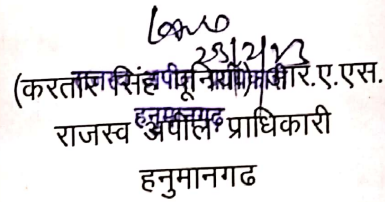 23/2/23
(करतार सिंह पूनियां) आर.ए.एस.
राजस्व अपील प्राधिकारी
हनुमानगढ